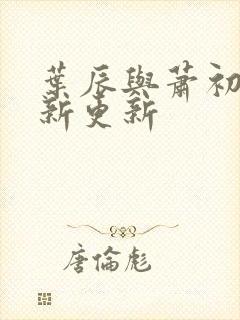 葉辰與蕭初
新更新
唐倫彪